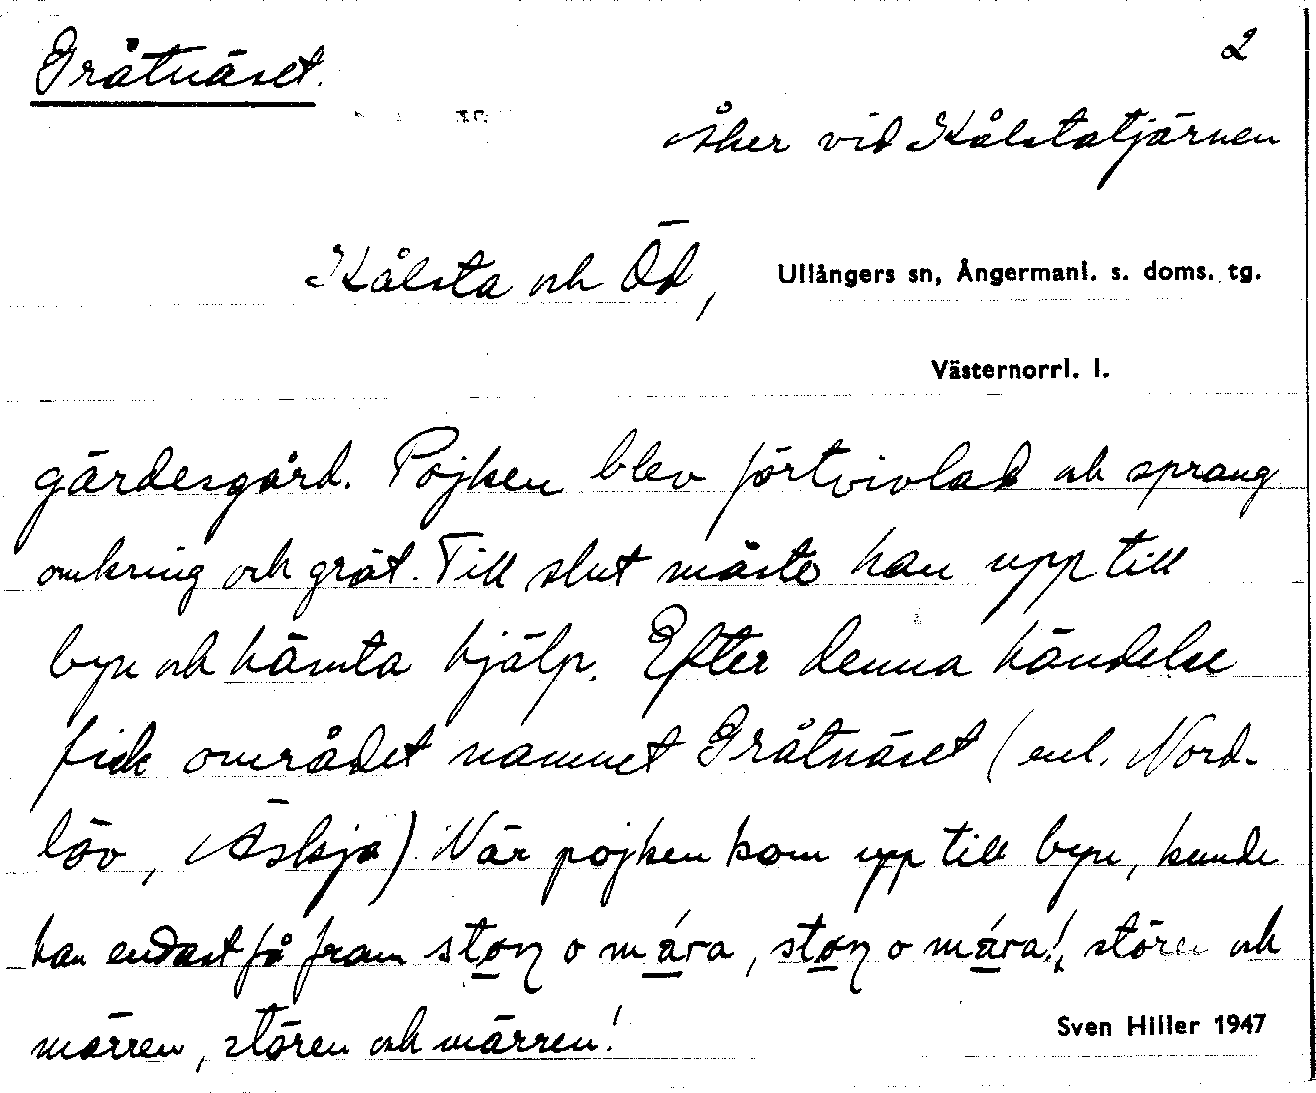 Gråtnäset.
2
Åker vid Kålstatjärnen
Kålsta och Öd,
Ullångers sn, Ångermanl. s. doms. tg.
Västernorrl. l.
gärdesgård. Pojken blev förtvivlad och sprang
omkring och grät. Till slut måste han upp till
byn och hämta hjälp. Efter denna händelse
fick området namnet Gråtnäset (enl. Nord-
löv, Äskja). När pojken kom upp till byn, kunde
han endast få fram støŋ o mǽra, støŋ o mǽra!, stören och
märren, stören och märren!
Sven Hiller 1947